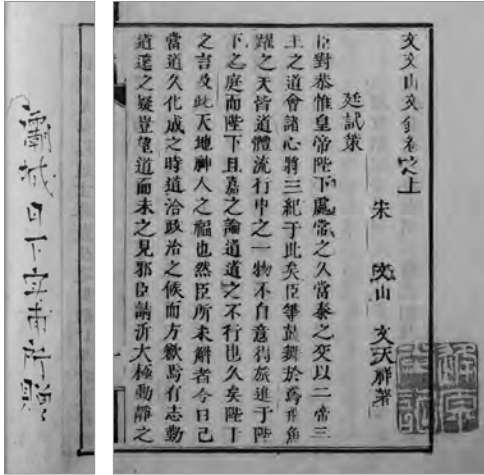 文文山文全卷之上
宋 文山 文天祥著
廷試策
臣對恭惟皇帝陛下處常之久當泰之交以二帝三
王之道會諸心將三紀于此矣臣等鼓舞於鳶飛魚
躍之天皆道體流行中之一物不自意得旅進于陛
下之庭而陛下且嘉之論道道之不行也久矣陛下
之言及此天地神人之福也然臣所未解者今日已
當道久化成之時道洽政治之候而方歉焉有志勤
道遠之疑豈望道而未之見邪臣請泝大極動靜之
城日下甫所贈